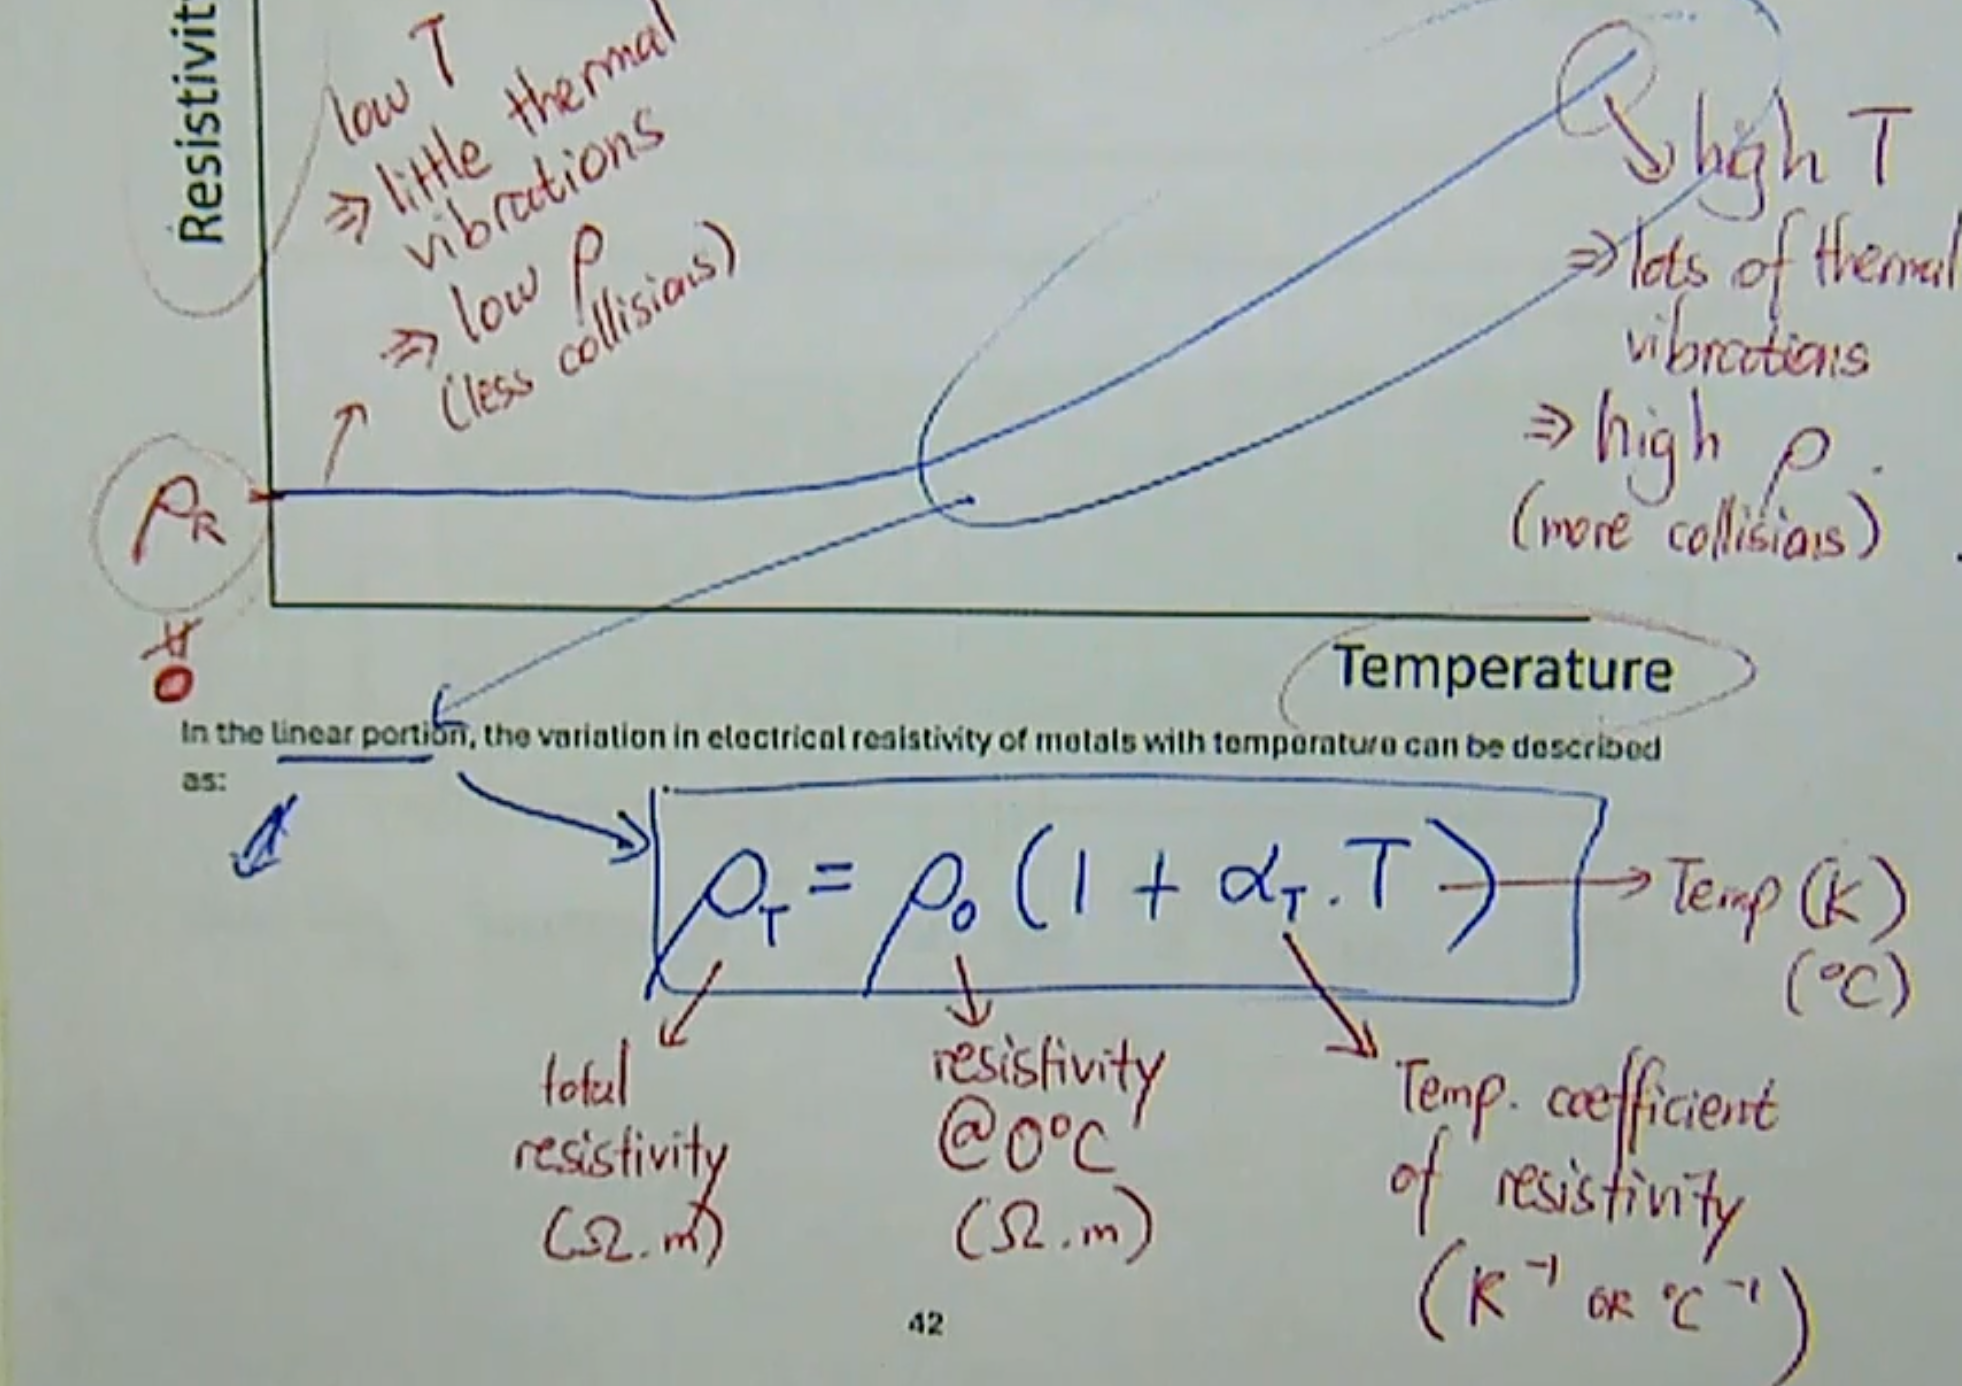 Resistivit
low T
⇒ little thermal
vibrations
⇒ low ρ
(less collisions)
high T
⇒ lots of thermal
vibrations
⇒ high ρ
(more collisions)
ρR
≠
0
Temperature
In the linear portion, the variation in electrical resistivity of metals with temperature can be described
as:
ρT = ρ0 (1 + αT . T)
Temp (K)
(°C)
total
resistivity
(Ω.m)
resistivity
@0°C
(Ω.m)
Temp. coefficient
of resistivity
(K⁻¹ OR °C⁻¹)
42